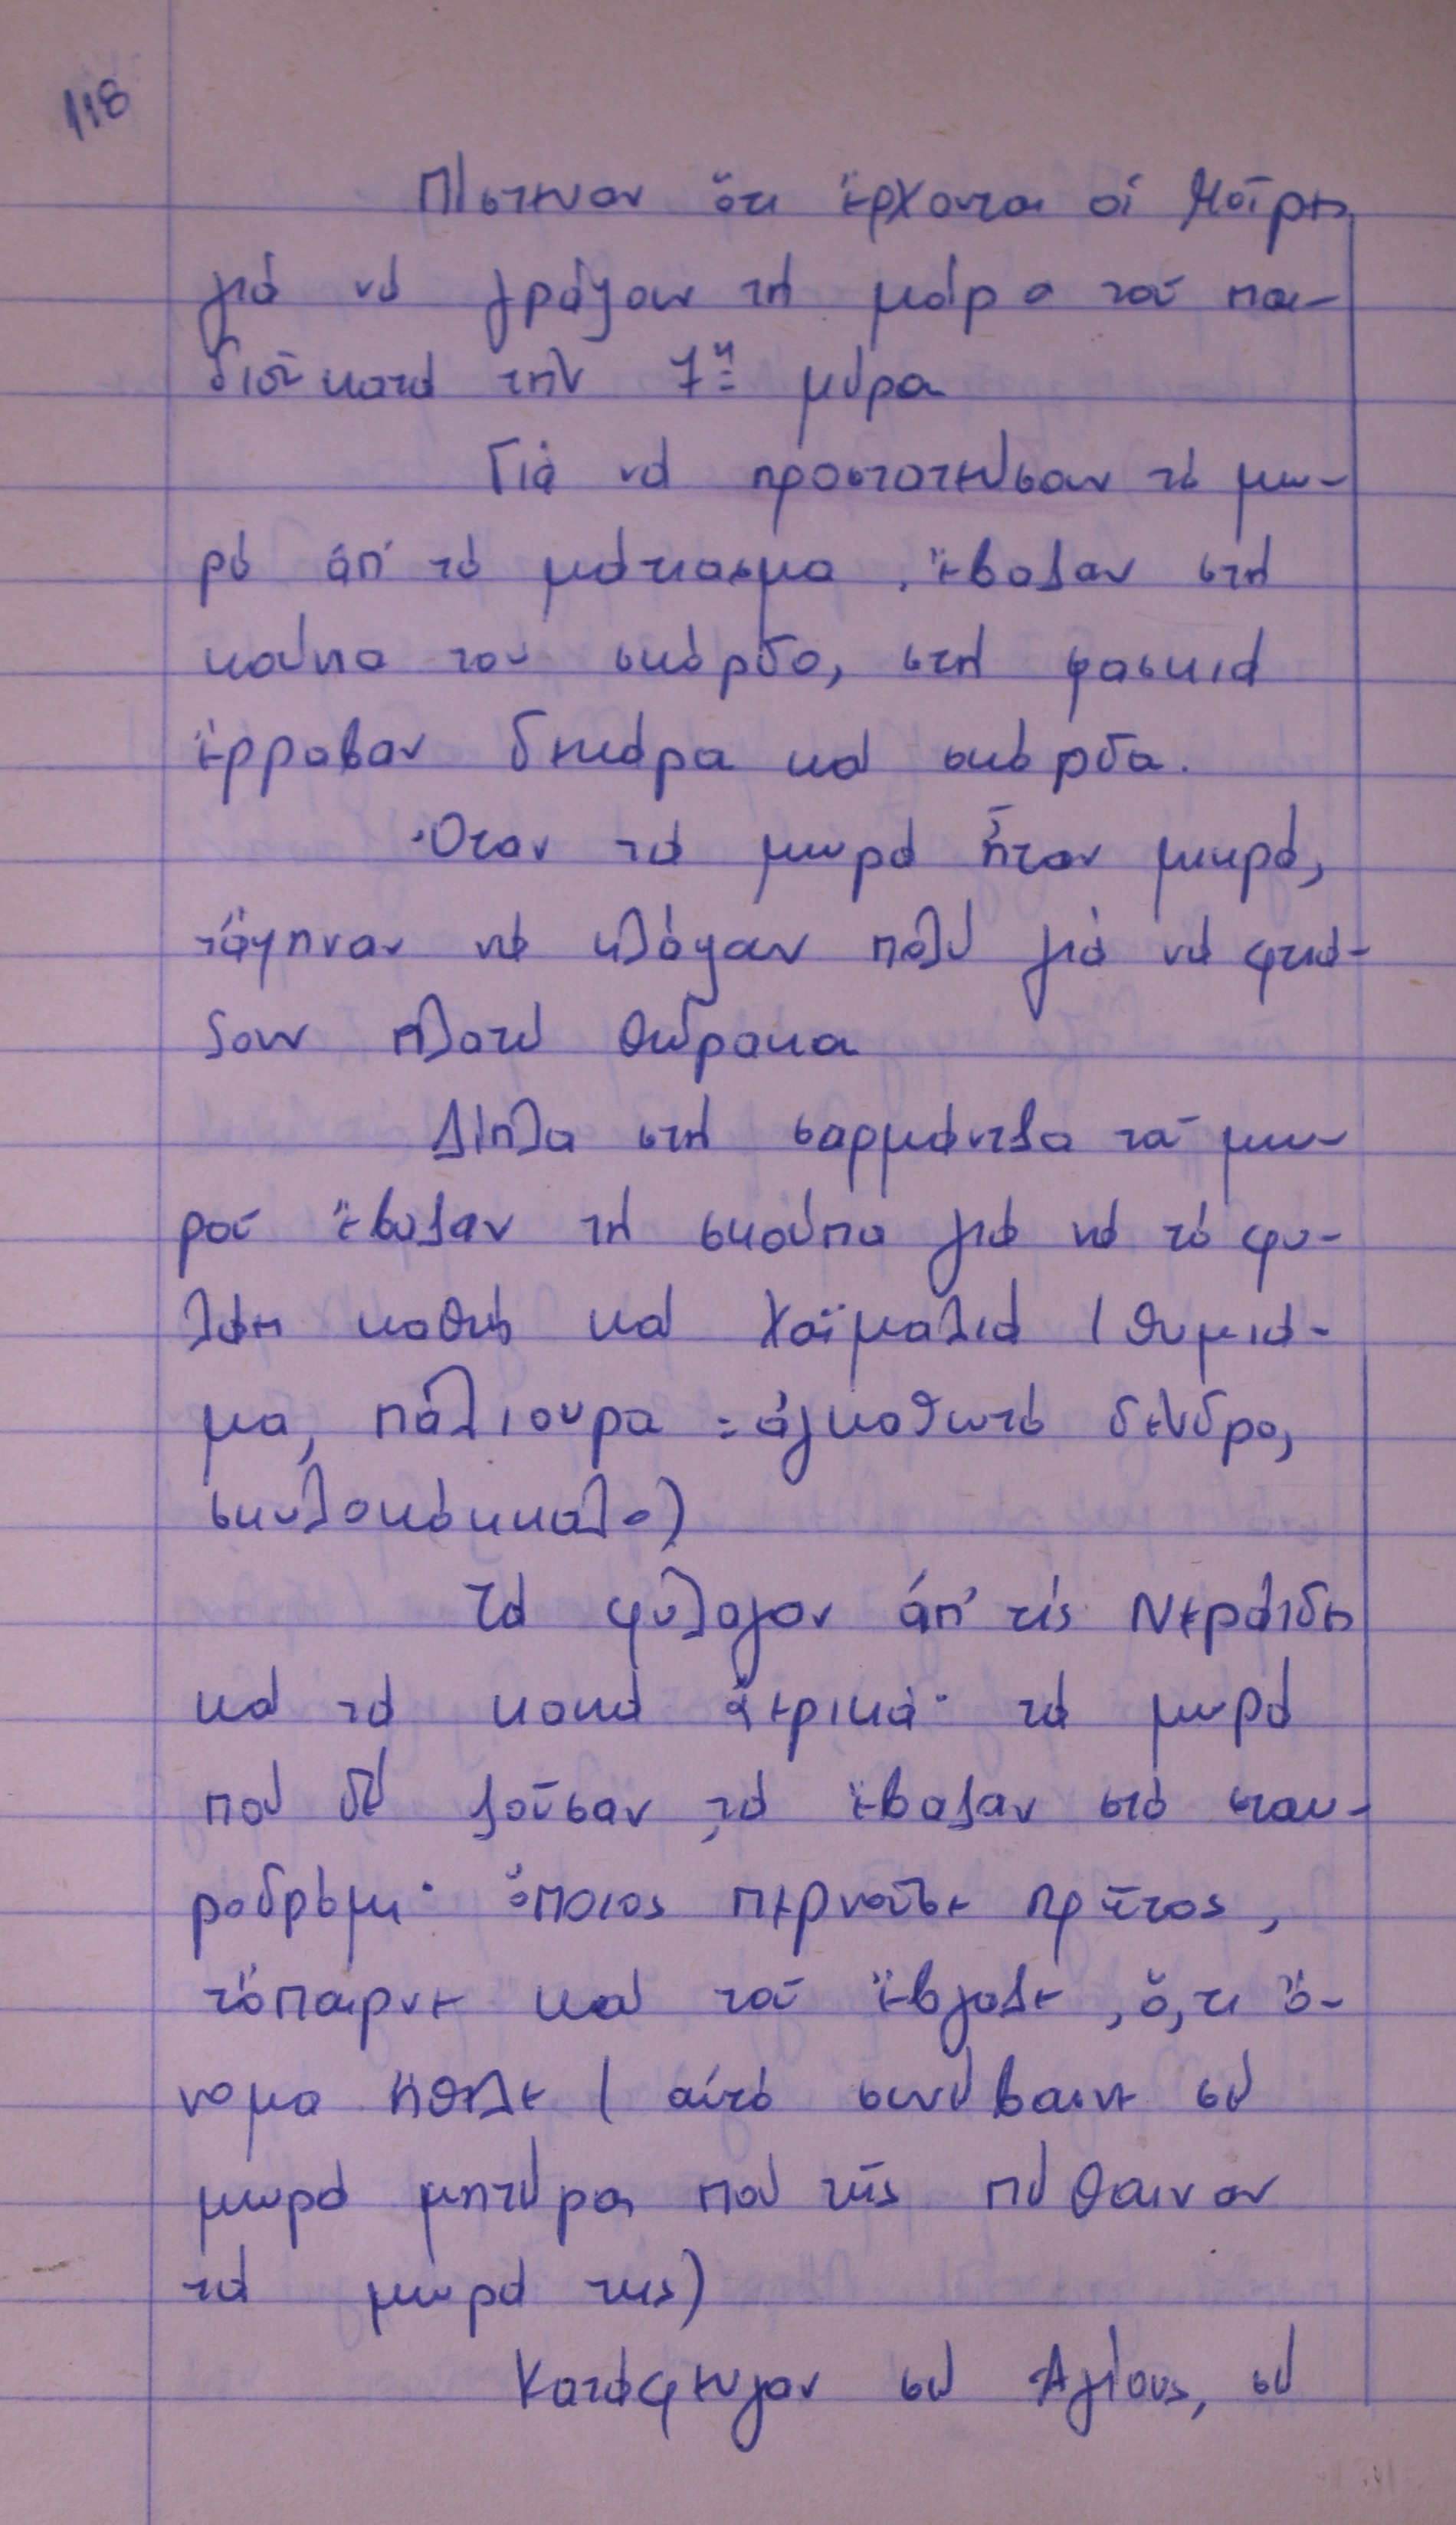 118
Πίστευαν ὅτι ἔρχονται οἱ Μοῖρες
γιά νά γράψουν τή μοίρα τοῦ παι-
διοῦ κατά τήν 7η μέρα
Γιά νά προστατεύσουν τό μω-
ρό ἀπ' τό μάτιασμα, ἔβαζαν στή
κούπα του σκόρδο, στή φασκιά
ἔρραβαν δεκάρα καί σκόρδα.
Ὅταν τά μωρά ἦταν μικρά,
τἄφηναν νά κλάψουν πολύ γιά νά φτιά-
ξουν πλατύ θώρακα
Δίπλα στή σαρμάντζα τοῦ μω-
ροῦ ἔβαζαν τή σκούπα γιά νά τό φυ-
λάει καθώς καί χαϊμαλιά (θυμιά-
μα, πάλιουρα = ἀγκαθωτό δένδρο,
σκυλοκόκκαλο)
Τά φύλαγαν ἀπ' τίς Νεράιδες
καί τά κακά ἀερικά· τά μωρά
πού δέ ζοῦσαν, τά ἔβαζαν στό σταυ-
ροδρόμι· ὅποιος περνοῦσε πρῶτος,
τὄπαιρνε καί τοῦ ἔβγαζε, ὅ,τι ὄ-
νομα ἤθελε (αὐτό συνέβαινε σέ
μωρά μητέρας πού τῆς πέθαιναν
τά μωρά της)
Κατάφευγαν σέ Ἁγίους, σέ